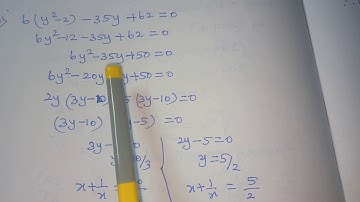 6(y²-2) -35y +62=0
6y²-12-35y+62=0
6y²-35y+50=0
6y²-20y y+50=0
2y(3y-10 5(3y-10)=0
(3y-10) y-5)=0
3y- =0 2y-5=0
/3 y=5/2
x+1/x = x+1/x = 5/2